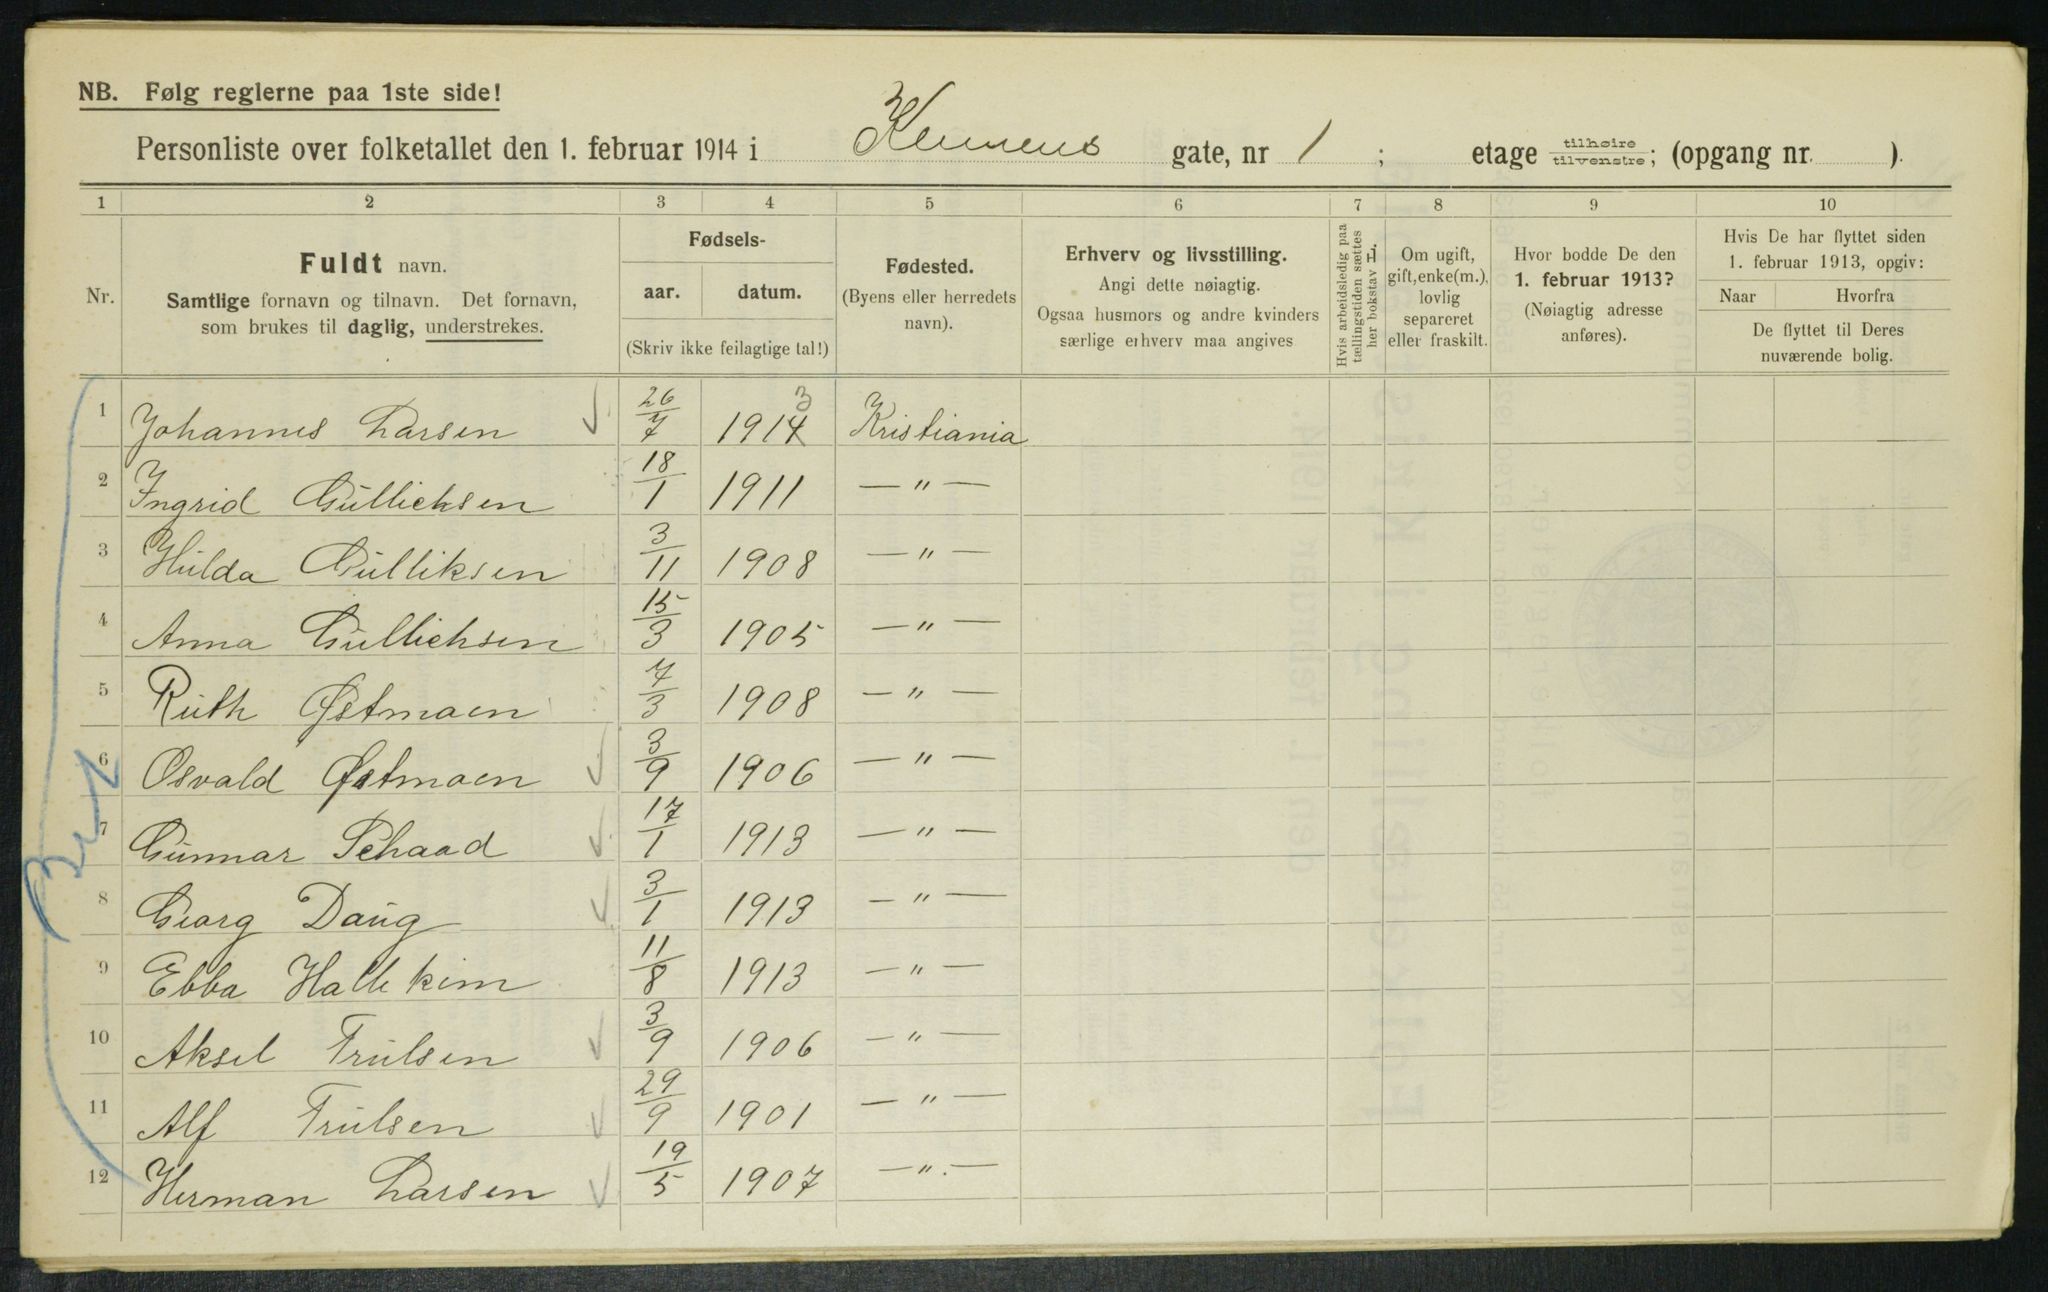 NB. Følg reglerne paa 1ste side!
Personliste over folketallet den 1. februar 1914 i Klemens gate, nr 1 ; etage tilhøire tilvenstre; (opgang nr. ).
1 2 3 4 5 6 7 8 9 10
Nr.
Fuldt navn.
Samtlige fornavn og tilnavn. Det fornavn,
som brukes til daglig, understrekes.
Fødsels-
aar. datum.
(Skriv ikke feilagtige tal!)
Fødested.
(Byens eller herredets
navn).
Erhverv og livsstilling.
Angi dette nøiagtig.
Ogsaa husmors og andre kvinders
særlige erhverv maa angives
Hvis arbeidsledig paa
tællingstiden sættes
her bokstav L.
Om ugift,
gift, enke(m.),
lovlig
separeret
eller fraskilt.
Hvor bodde De den
1. februar 1913?
(Nøiagtig adresse
anføres).
Hvis De har flyttet siden
1. februar 1913, opgiv:
Naar Hvorfra
De flyttet til Deres
nuværende bolig.
1 Johannes Larsen 26/7 1914 3 Kristiania
2 Ingrid Gullicksen 18/1 1911 — " —
3 Hulda Gulliksen 3/11 1908 — " —
4 Anna Gullichsen 15/3 1905 — " —
5 Ruth Østmoen 7/3 1908 — " —
6 Osvald Østmoen 3/9 1906 — " —
7 Gunnar Schaad 17/1 1913 — " —
8 Georg Daug 3/1 1913 — " —
9 Ebba Hallekim 11/8 1913 — " —
10 Aksel Trulsen 3/9 1906 — " —
11 Alf Trulsen 29/9 1901 — " —
12 Herman Larsen 19/5 1907 — " —